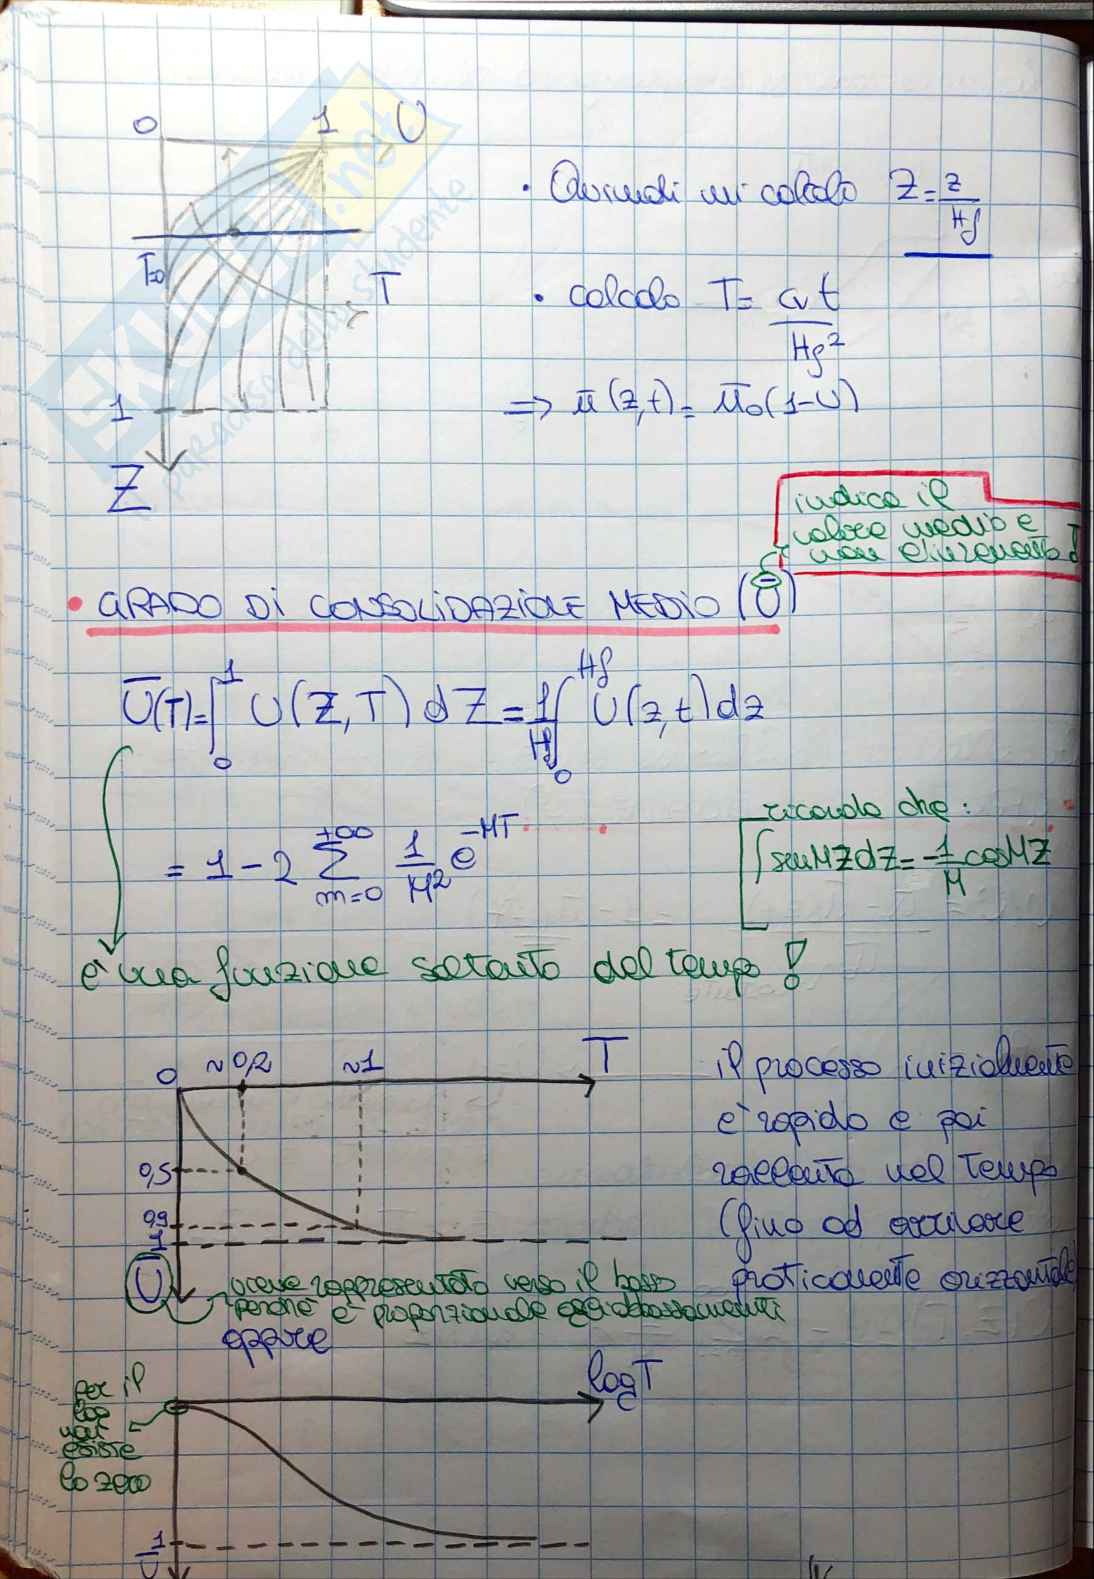 0 1 U
T=0
T
1
Z
• Quindi mi calcolo Z = z/Hf
• calcolo T = cv t/Hf²
=> ū(z,t) = ū0(1-U)
indica il
valore medio e
non
• GRADO DI CONSOLIDAZIONE MEDIO (Ū)
Ū(T) = ∫₀¹ U(Z,T) dZ = 1/Hf ∫₀^Hf U(z,t) dz
= 1 - 2 Σ_{m=0}^{+∞} 1/M² e^{-MT}
ricorda che:
∫ senMZdZ = -1/M cosMZ
è una funzione soltanto del tempo!
0 ~0,2 ~1 T
0,5
0,9
1
Ū
il processo inizialmente
è rapido e poi
rallenta nel tempo
(fino ad arrivare
praticamente orizzontale)
viene rappresentato verso il basso
perché è proporzionale agli abbassamenti
oppure
logT
per il
log
non
esiste
lo zero
1
Ū
SKUOLA.net
paradiso dello studente